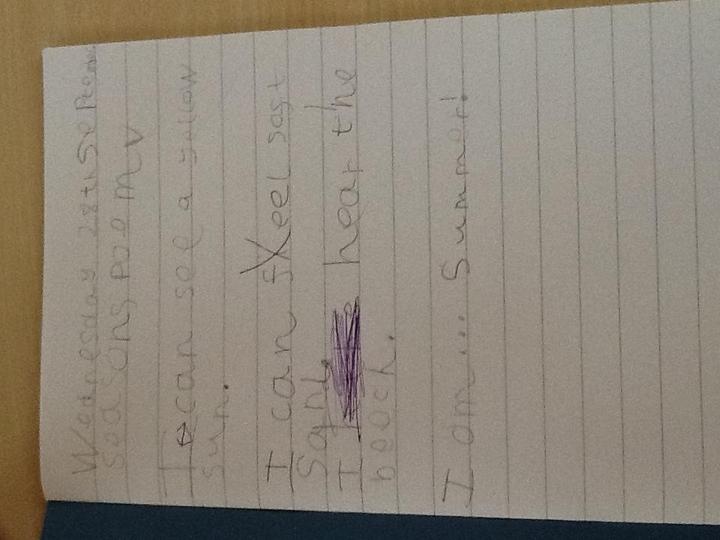 Wednesday 28th Septem
seasons poem
I can see a yellow
sun.
I can feel soft
Sand.
I hear the
beach.
I am... Summer!